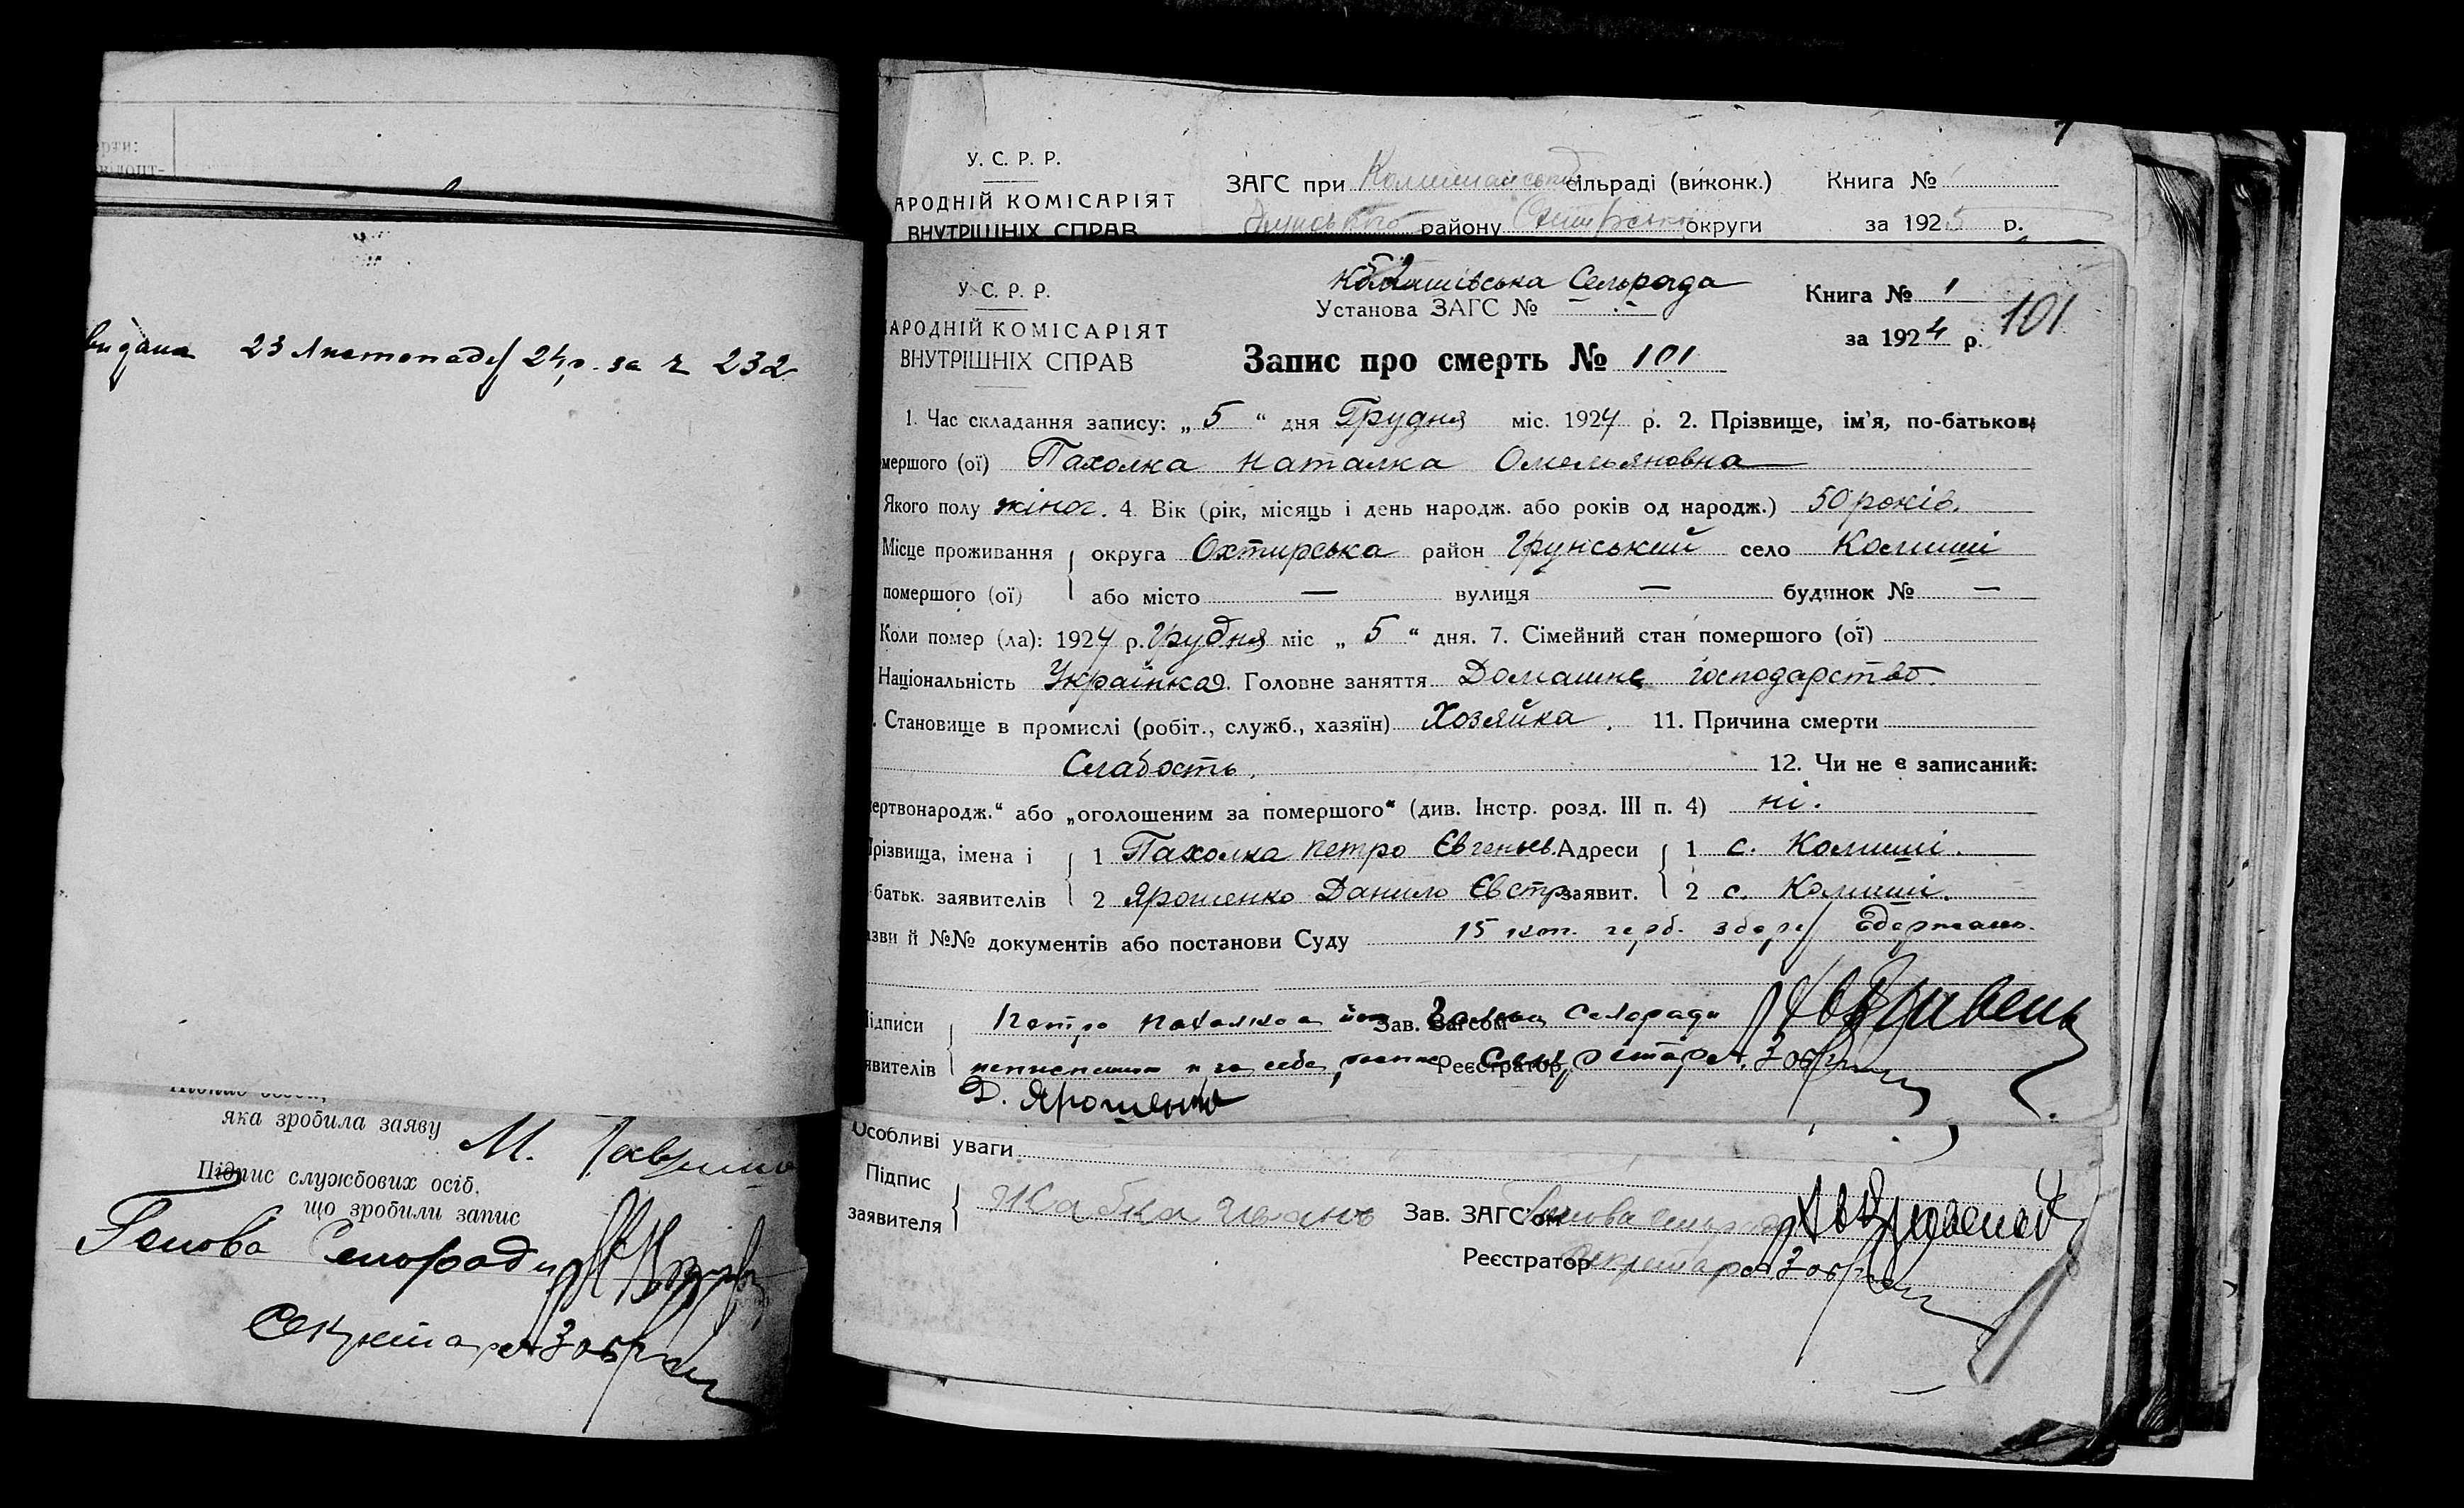 рти:
У. С. Р. Р.
АРОДНІЙ КОМІСАРІЯТ
ВНУТРІШНІХ СПРАВ
ЗАГС при сільраді (виконк.) Книга №
району округи за 1925 р.
видана 23 Листопада 24 р. за ч 232
У. С. Р. Р.
АРОДНІЙ КОМІСАРІЯТ
ВНУТРІШНІХ СПРАВ
Сельрада
Установа ЗАГС № -
Книга № 1
за 1924 р.
101
Запис про смерть № 101
1. Час складання запису: „ 5 “ дня Грудня міс. 1924 р. 2. Прізвище, ім'я, по-батькові
мершого (ої) Пахолка Наталка Омельяновна
Якого полу жіноч. 4. Вік (рік, місяць і день народж. або років од народж.) 50 років.
Місце проживання округа Охтирська район Грунський село Комиші
помершого (ої) або місто — вулиця — будинок № —
Коли помер (ла): 1924 р. Грудня міс „ 5 “ дня. 7. Сімейний стан помершого (ої)
Національність Українка 9. Головне заняття Домашнє господарство.
. Становище в промислі (робіт., служб., хазяїн) Хозяйка. 11. Причина смерти
Слабость. 12. Чи не є записаний:
ертвонародж.“ або „оголошеним за помершого“ (див. Інстр. розд. III п. 4) ні.
Прізвища, імена і 1 Пахолка Петро Євгеньев. Адреси 1 с. Комиші.
батьк. заявителів 2 Ярошенко Данило Євстр. заявит. 2 с. Комиші.
азви й №№ документів або постанови Суду 15 коп. герб. збору Едержано.
Підписи Петро Пахолка а Зав. Загсом Голова Селоради
явителів неписьмен и за себе Реєстратор Секретар
Д. Ярошенко
яка зробила заяву М.
Підпис службових осіб,
що зробили запис
Голова Селоради
Секретар
Особливі уваги
Підпис
заявителя Жабка Иванъ Зав. ЗАГС'ом Голова сельради
Реєстратор Секретар